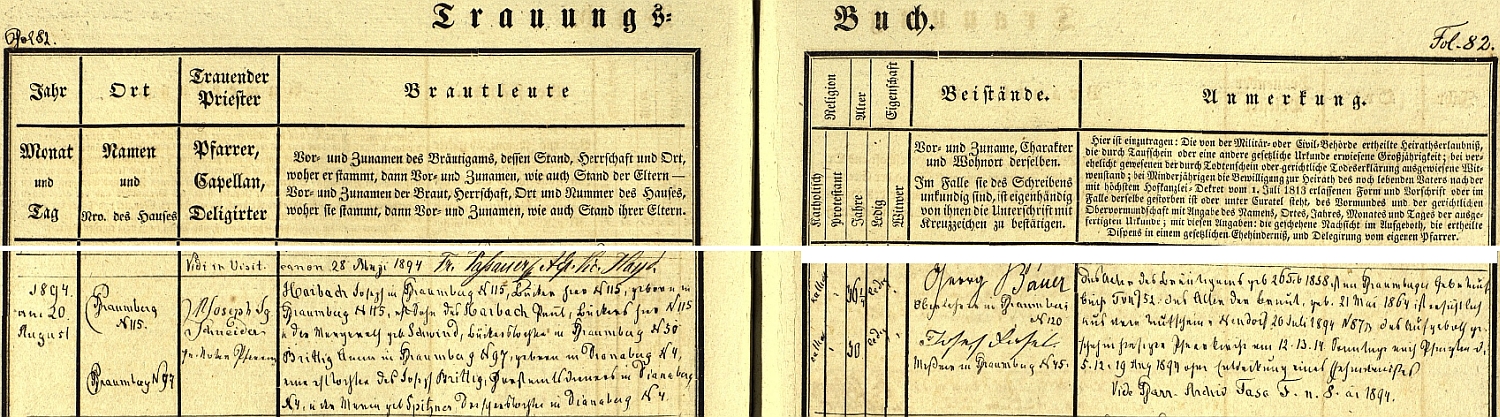 Trauungs-
Buch.
Fol 82.
Fol. 82.
Jahr
Ort
Trauender
Priester
Brautleute
Monat
und
Tag
Namen
und
Nro. des Hauses
Pfarrer,
Capellan,
Deligirter
Vor- und Zunamen des Bräutigams, dessen Stand, Herrschaft und Ort,
woher er stammt, dann Vor- und Zunamen, wie auch Stand der Eltern —
Vor- und Zunamen der Braut, Herrschaft, Ort und Nummer des Hauses,
woher sie stammt, dann Vor- und Zunamen, wie auch Stand ihrer Eltern.
Religion
Alter
Eigenschaft
Beistände.
Anmerkung.
Katholisch
Protestant
Jahre
Ledig
Witwer
Vor- und Zuname, Charakter
und Wohnort derselben.
Im Falle sie des Schreibens
unkundig sind, ist eigenhändig
von ihnen die Unterschrift mit
Kreuzzeichen zu bestätigen.
Hier ist einzutragen: Die von der Militär- oder Civil-Behörde ertheilte Heirathserlaubniß,
die durch Taufschein oder eine andere gesetzliche Urkunde erwiesene Großjährigkeit; bei ver-
ehelicht gewesenen der durch Todtenschein oder gerichtliche Todeserklärung ausgewiesene Wit-
wenstand; bei Minderjährigen die Bewilligung zur Heirath des noch lebenden Vaters nach der
mit höchstem Hofkanzlei-Dekret vom 1. Juli 1813 erlassenen Form und Vorschrift oder im
Falle derselbe gestorben ist oder unter Curatel steht, des Vormundes und der gerichtlichen
Obervormundschaft mit Angabe des Namens, Ortes, Jahres, Monates und Tages der ausge-
fertigten Urkunde; mit diesen Angaben: die geschehene Nachsicht im Aufgeboth, die ertheilte
Dispens in einem gesetzlichen Ehehinderniß, und Delegirung vom eigenen Pfarrer.
Vidi in Visit. canon 28 Maji 1894
1894
am 20.
August
Pfraumberg
N 115.
Pfraumberg N 97
P. Joseph
Schneider
Haibach Josef in Pfraumberg N 115, Bäcker hier N 115, geboren in
Pfraumberg N 115, ehl. Sohn des Haibach Paul, Bäckers hier N 115
u. der Margareth geb Schmid, Bäckerstochter in Pfraumberg N 50
Brittig Anna in Pfraumberg N 97, geboren in Dianaberg N 4,
Tochter des Josef Brittig, Forstamtsdieners in Dianaberg
N 4, u. der Maria geb Spitzner in Dianaberg N 4.
kathol
36
ledig
kathol
30
ledig
Georg Bauer
Oberlehrer in Pfraumberg
N 120
Josef
Meßner in Pfraumberg N 45.
Das Alter des Bräutigams geb 26 1858 in Pfraumberg Geburts-
buch Tom 51. Das Alter der Braut, geb. 21 Mai 1864 ist ersichtlich
aus dem Taufschein 26 Juli 1894 N 87. Das Aufgeboth ge-
schah in hiesiger Pfarrkirche am 12. 13. 14. Sonntage nach Pfingsten d.
5. 12. 19 Aug 1894 ohne Entdeckung eines Hindernißes
Vide Pfarr. Archiv Fasc F. n. 8. ai 1894.